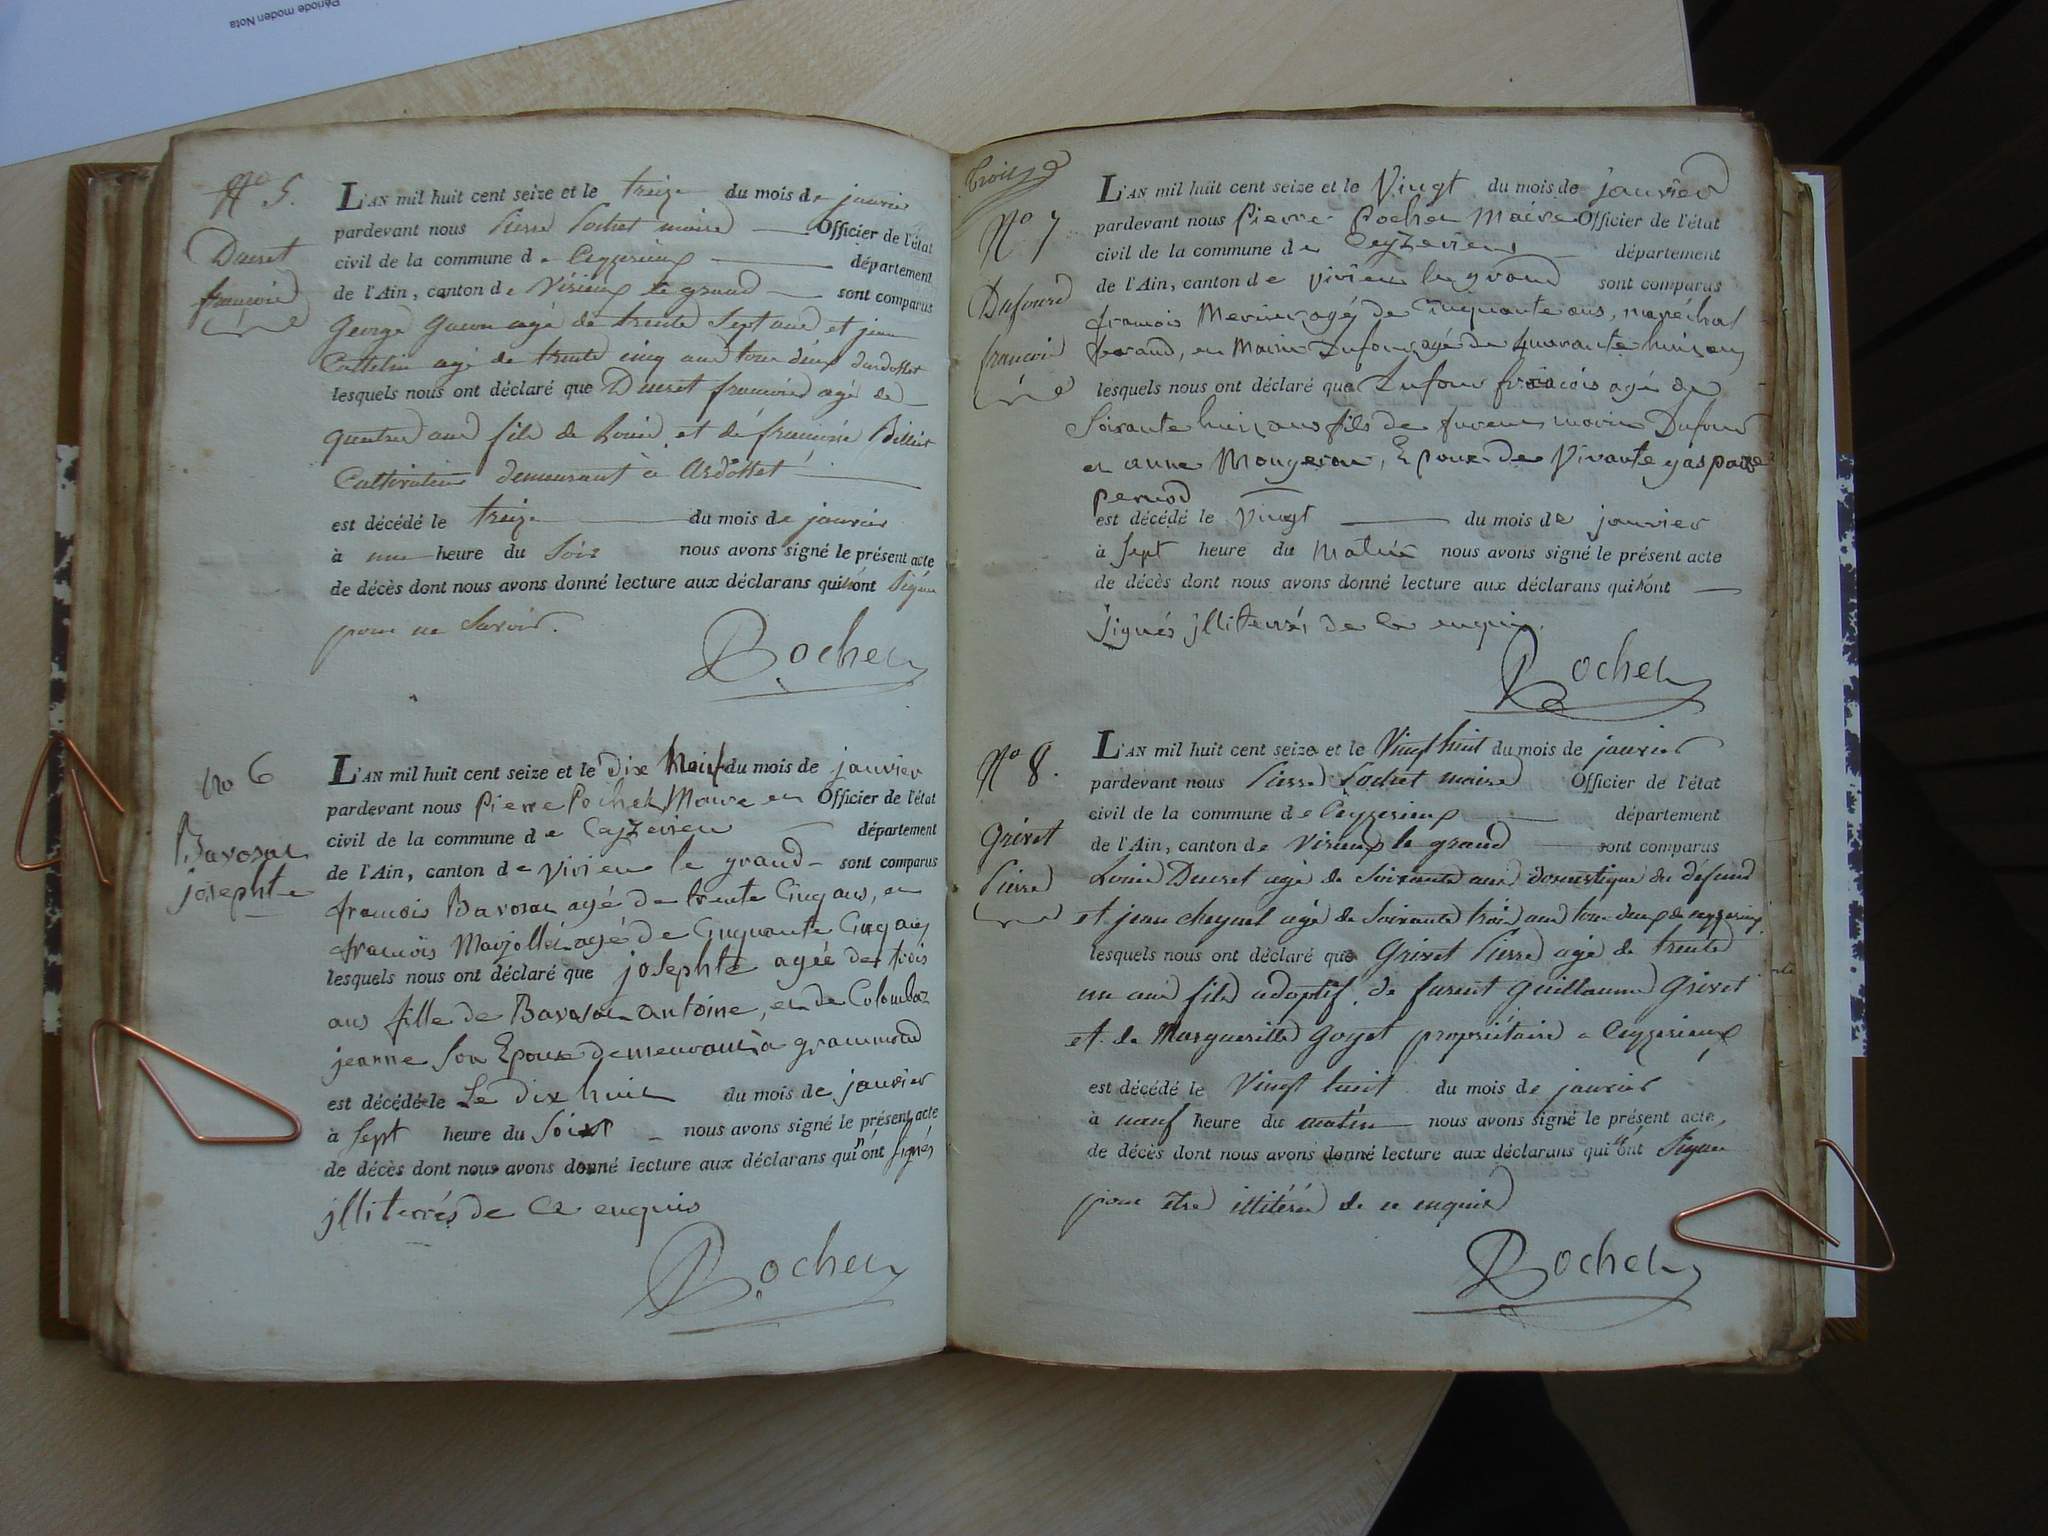 Période moden Nota
N° 5.
Ducret
françois
L'AN mil huit cent seize et le treize du mois de janvier
pardevant nous Pierre Pochet maire Officier de l'état
civil de la commune de Ceyzerieux département
de l'Ain, canton de Virieux le grand sont comparus
George agé de trente Sept ans et jean
agé de trente cinq ans tous deux dardosset
lesquels nous ont déclaré que Ducret françois agé de
quatre ans fils de Louis et de françoise Billiet
Cultivateur demeurant à Ardosset
est décédé le treize du mois de janvier
à une heure du Soir nous avons signé le présent acte
de décès dont nous avons donné lecture aux déclarans qui n'ont Signé
pour ne Savoir.
Pochet
no 6
Bavosat
josephte
L'AN mil huit cent seize et le dix Neuf du mois de janvier
pardevant nous Pierre Pochet Maire et Officier de l'état
civil de la commune de Cayzerieu département
de l'Ain, canton de Virieu le grand sont comparus
françois Bavosat agé de trente Cinq ans, et
françois agé de Cinquante Cinq ans
lesquels nous ont déclaré que josephte agée de trois
ans fille de Bavosat antoine, et de Colombaz
jeanne Son Epouse demeurant à grammond
est décédé le Le dix huit du mois de janvier
à Sept heure du Soir nous avons signé le présent acte
de décès dont nous avons donné lecture aux déclarans qui n'ont signés
jlliterrés de ce enquis
Pochet
troize
N° 7
Dufourd
françois
L'AN mil huit cent seize et le Vingt du mois de janvier
pardevant nous Pierre Pochet Maire Officier de l'état
civil de la commune de Ceyzerieu département
de l'Ain, canton de virieu le grand sont comparus
françois agé de Cinquante ans, maréchal
ferand, et Dufour agé de quarante huit ans
lesquels nous ont déclaré que Dufour françois agé de
Soixante huit ans fils de furent Dufour
et anne Mongeron, Epoux de Vivante gasparde
pernod
est décédé le Vingt du mois de janvier
à Sept heure du Matin nous avons signé le présent acte
de décès dont nous avons donné lecture aux déclarans qui n'ont
Signés jlliterrés de ce enquis.
Pochet
N° 8.
Grivet
Pierre
L'AN mil huit cent seize et le Vingt huit du mois de janvier
pardevant nous Pierre Pochet maire Officier de l'état
civil de la commune de Ceyzerieux département
de l'Ain, canton de Virieux le grand sont comparus
Louis Ducret agé de Soixante ans domestique du défund
et jean cheynel agé de Soixante trois ans tous deux de ceyzerieux
lesquels nous ont déclaré que Grivet Pierre agé de trente
un ans fils adoptif de furent guillaume Grivet
et de Margueritte Goyet propriétaire a Ceyzerieux
est décédé le Vingt huit du mois de janvier
à neuf heure du matin nous avons signé le présent acte,
de décès dont nous avons donné lecture aux déclarans qui n'ont Signé
pour être illitéré de ce enquis
Pochet